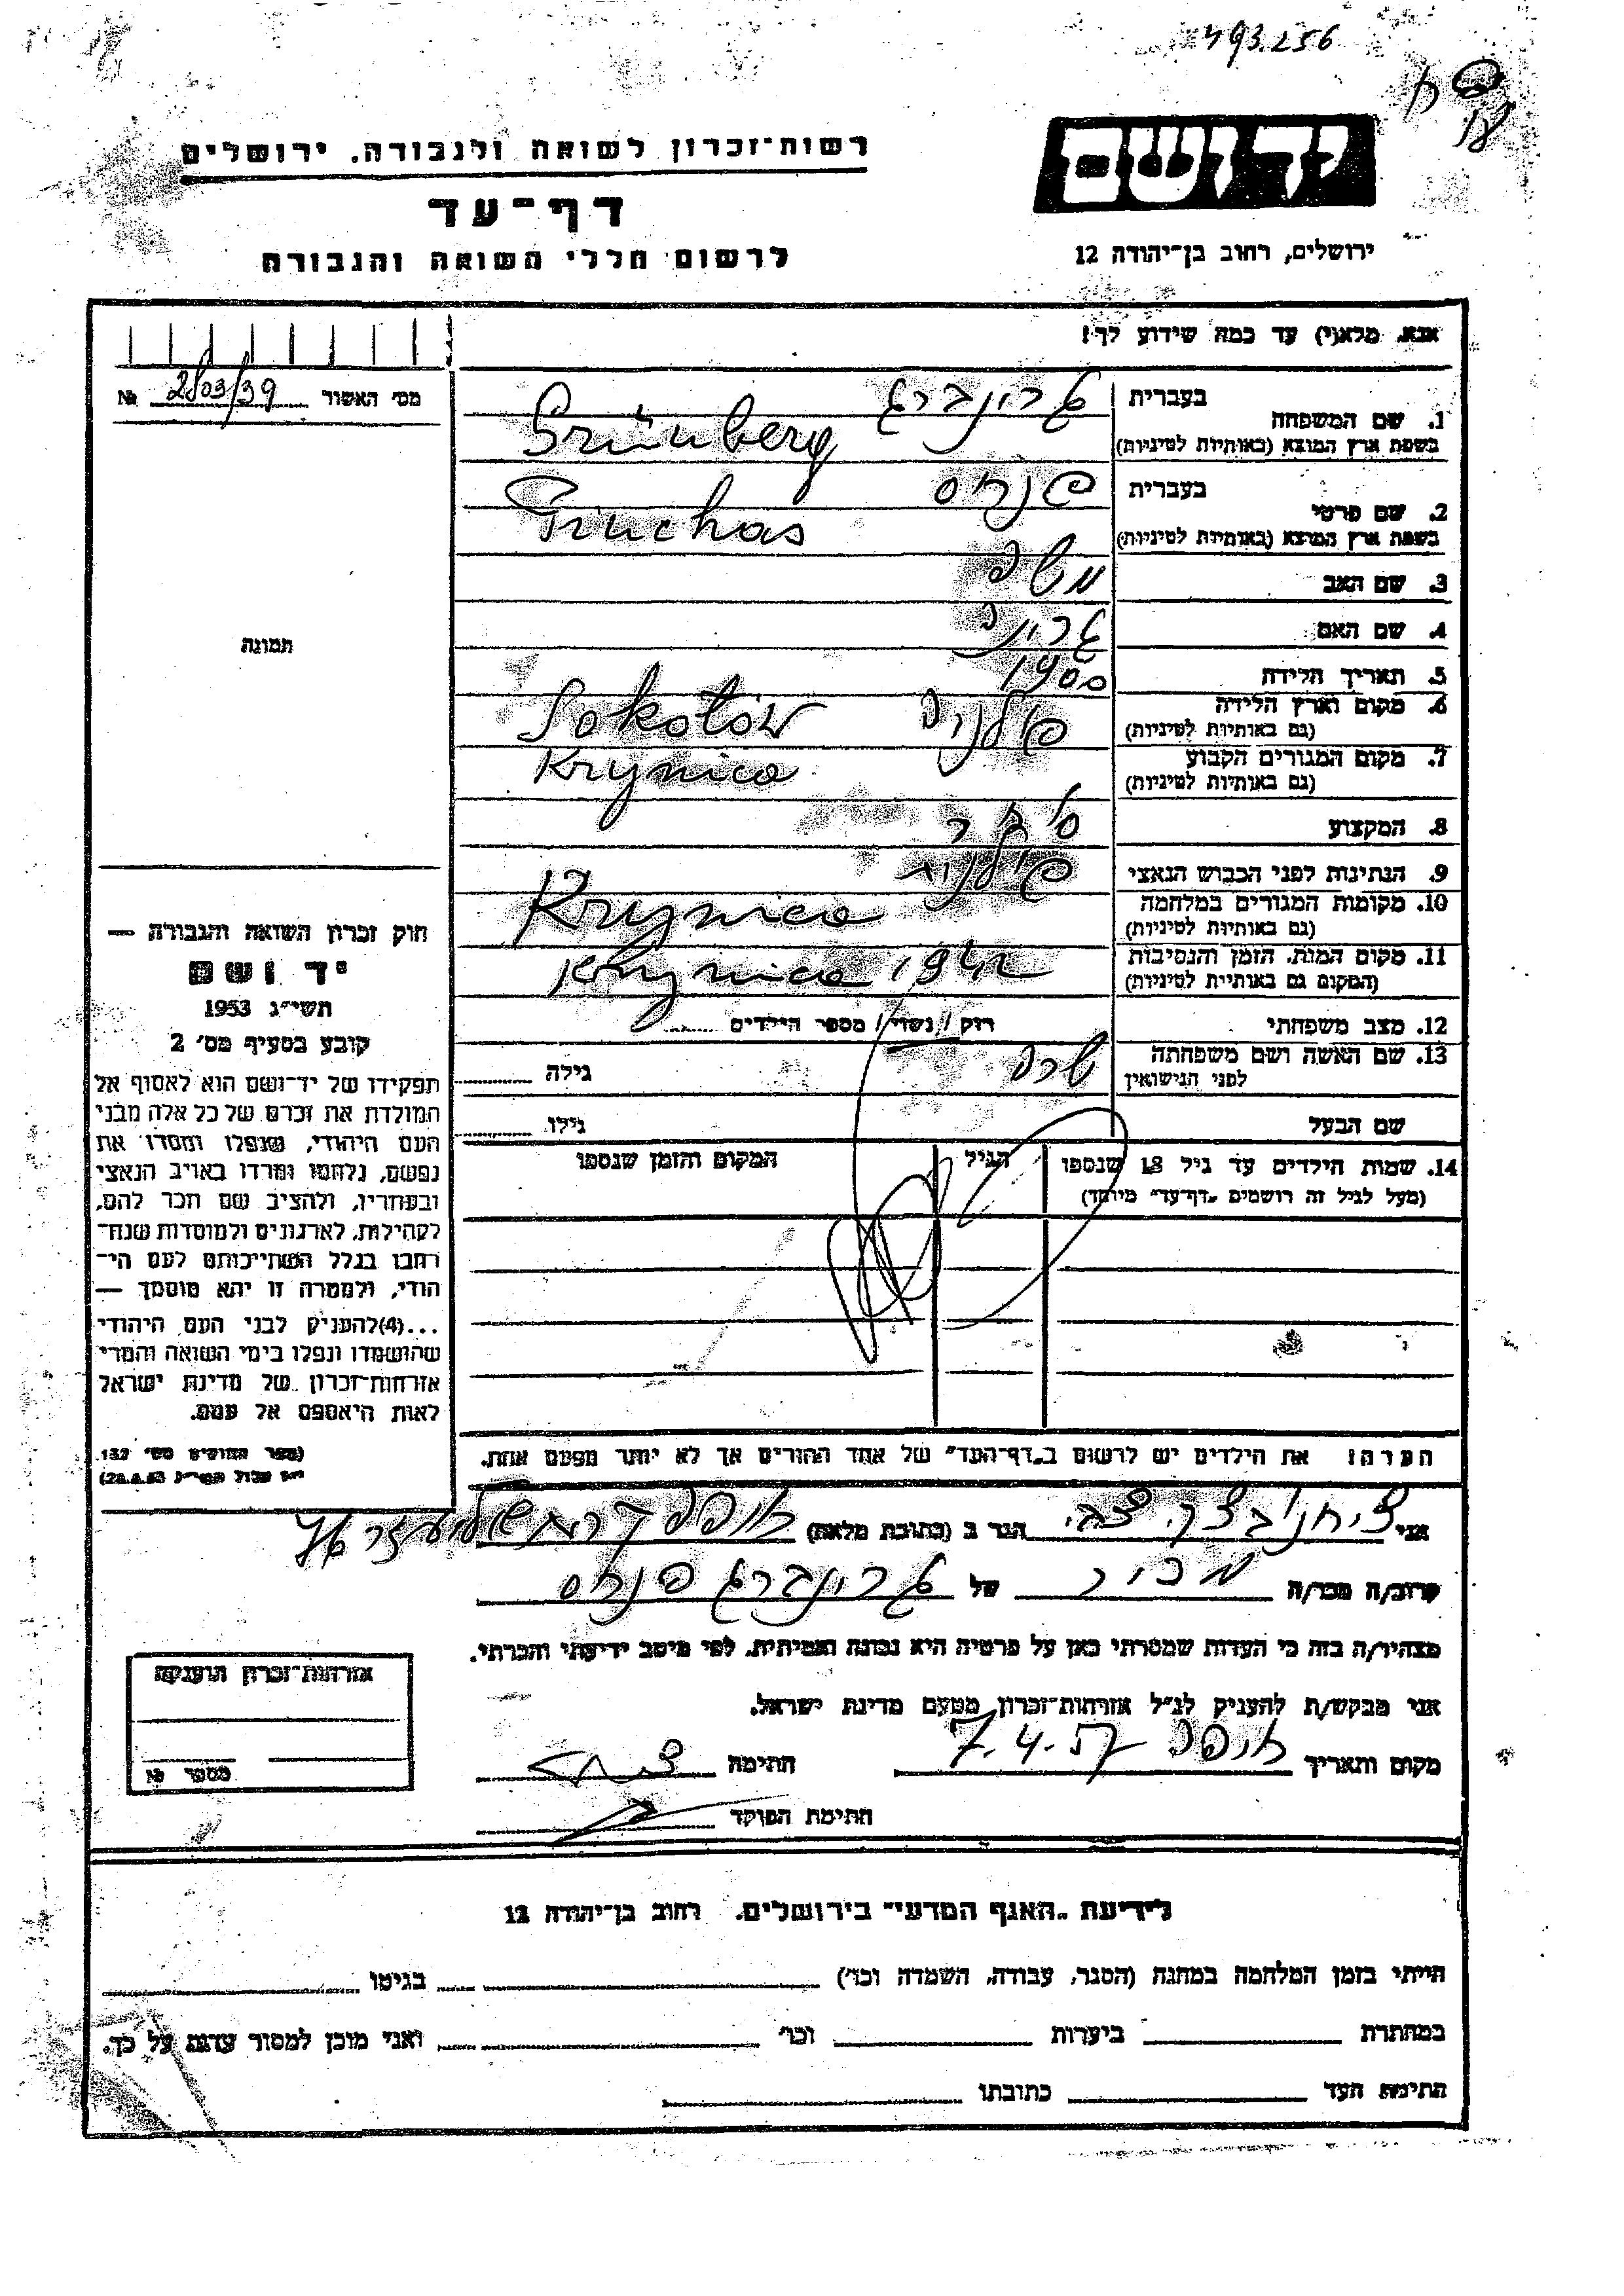 493.256
יד ושם
רשות־זכרון לשואה ולגבורה. ירושלים
דף־עד
לרשום חללי השואה והגבורה
ירושלים, רחוב בן־יהודה 12
אנא, מלא(י) עד כמה שידוע לך!
מס׳ האשור 2803/39 №
1. שם המשפחה
בעברית גרונברג
בשפת ארץ המוצא (באותיות לטיניות) Grünberg
2. שם פרטי
בעברית פנחס
בשפת ארץ המוצא (באותיות לטיניות) Pinchas
3. שם האב משה
4. שם האם
5. תאריך הלידה 1900
6. מקום וארץ הלידה
(גם באותיות לטיניות) פולניה Sokołów
7. מקום המגורים הקבוע
(גם באותיות לטיניות) Krynica
8. המקצוע סוחר
9. הנתינות לפני הכבוש הנאצי פולנית
10. מקומות המגורים במלחמה
(גם באותיות לטיניות) Krynica
11. מקום המות, הזמן והנסיבות
(המקום גם באותיות לטיניות) Krynica 1942
12. מצב משפחתי רווק / נשוי / מספר הילדים
13. שם האשה ושם משפחתה
לפני הנישואין שרה גילה
שם הבעל גילו
14. שמות הילדים עד גיל 18 שנספו
(מעל לגיל זה רושמים „דף־עד״ מיוחד)
הגיל
המקום והזמן שנספו
הערה! את הילדים יש לרשום ב„דף־העד״ של אחד ההורים אך לא יותר מפעם אחת.
תמונה
חוק זכרון השואה והגבורה —
יד ושם
תשי״ג 1953
קובע בסעיף מס׳ 2
תפקידו של יד־ושם הוא לאסוף אל
המולדת את זכרם של כל אלה מבני
העם היהודי, שנפלו ומסרו את
נפשם, נלחמו ומרדו באויב הנאצי
ובעוזריו, ולהציב שם וזכר להם,
לקהילות, לארגונים ולמוסדות שנח־
רבו בגלל השתייכותם לעם הי־
הודי, ולמטרה זו יהא מוסמך —
...(4)להעניק לבני העם היהודי
שהושמדו ונפלו בימי השואה והמרי
אזרחות־זכרון של מדינת ישראל
לאות היאספם אל עמם.
(ספר החוקים מס׳ 132
אני צבי הגר ב (כתובת מלאה)
קרוב/ה מכר/ה מכיר של גרונברג פנחס
מצהיר/ה בזה כי העדות שמסרתי כאן על פרטיה היא נכונה ואמיתית, לפי מיטב ידיעתי והכרתי.
אני מבקש/ת להעניק לנ״ל אזרחות־זכרון מטעם מדינת ישראל.
מקום ותאריך 7.4.57 חתימה
חתימת הפוקד
אזרחות־זכרון הוענקה
מספר №
לידיעת „האגף המדעי״ בירושלים. רחוב בן־יהודה 12
הייתי בזמן המלחמה במחנה (הסגר, עבודה, השמדה וכו׳) בגיטו
במחתרת ביערות וכו׳ ואני מוכן למסור עדות על כך.
חתימת העד כתובתו